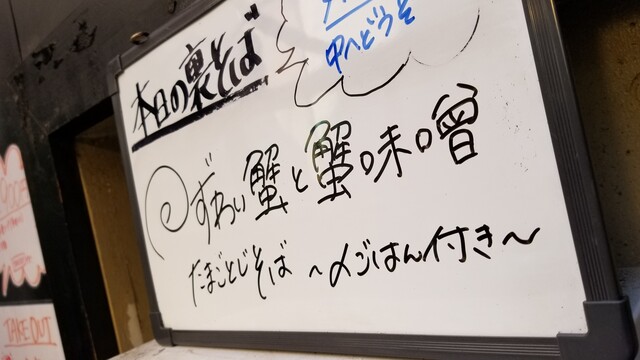 本日の裏そば
中へどうぞ
ずわい蟹と蟹味噌
たまごとじそば 〜〆ごはん付き〜
TAKE OUT